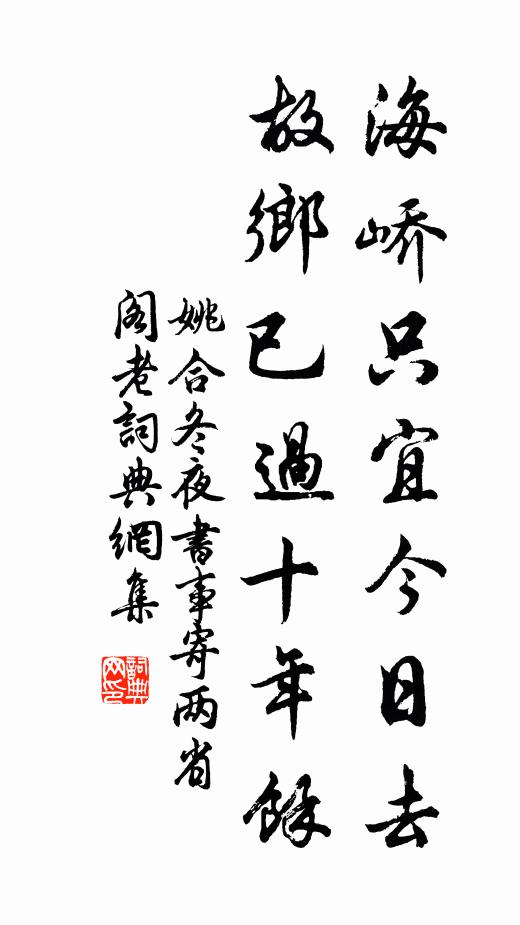 海嶠只宜今日去
故鄉已過十年餘
姚合冬夜書事寄两省
阁老詞典網集
詞典网印